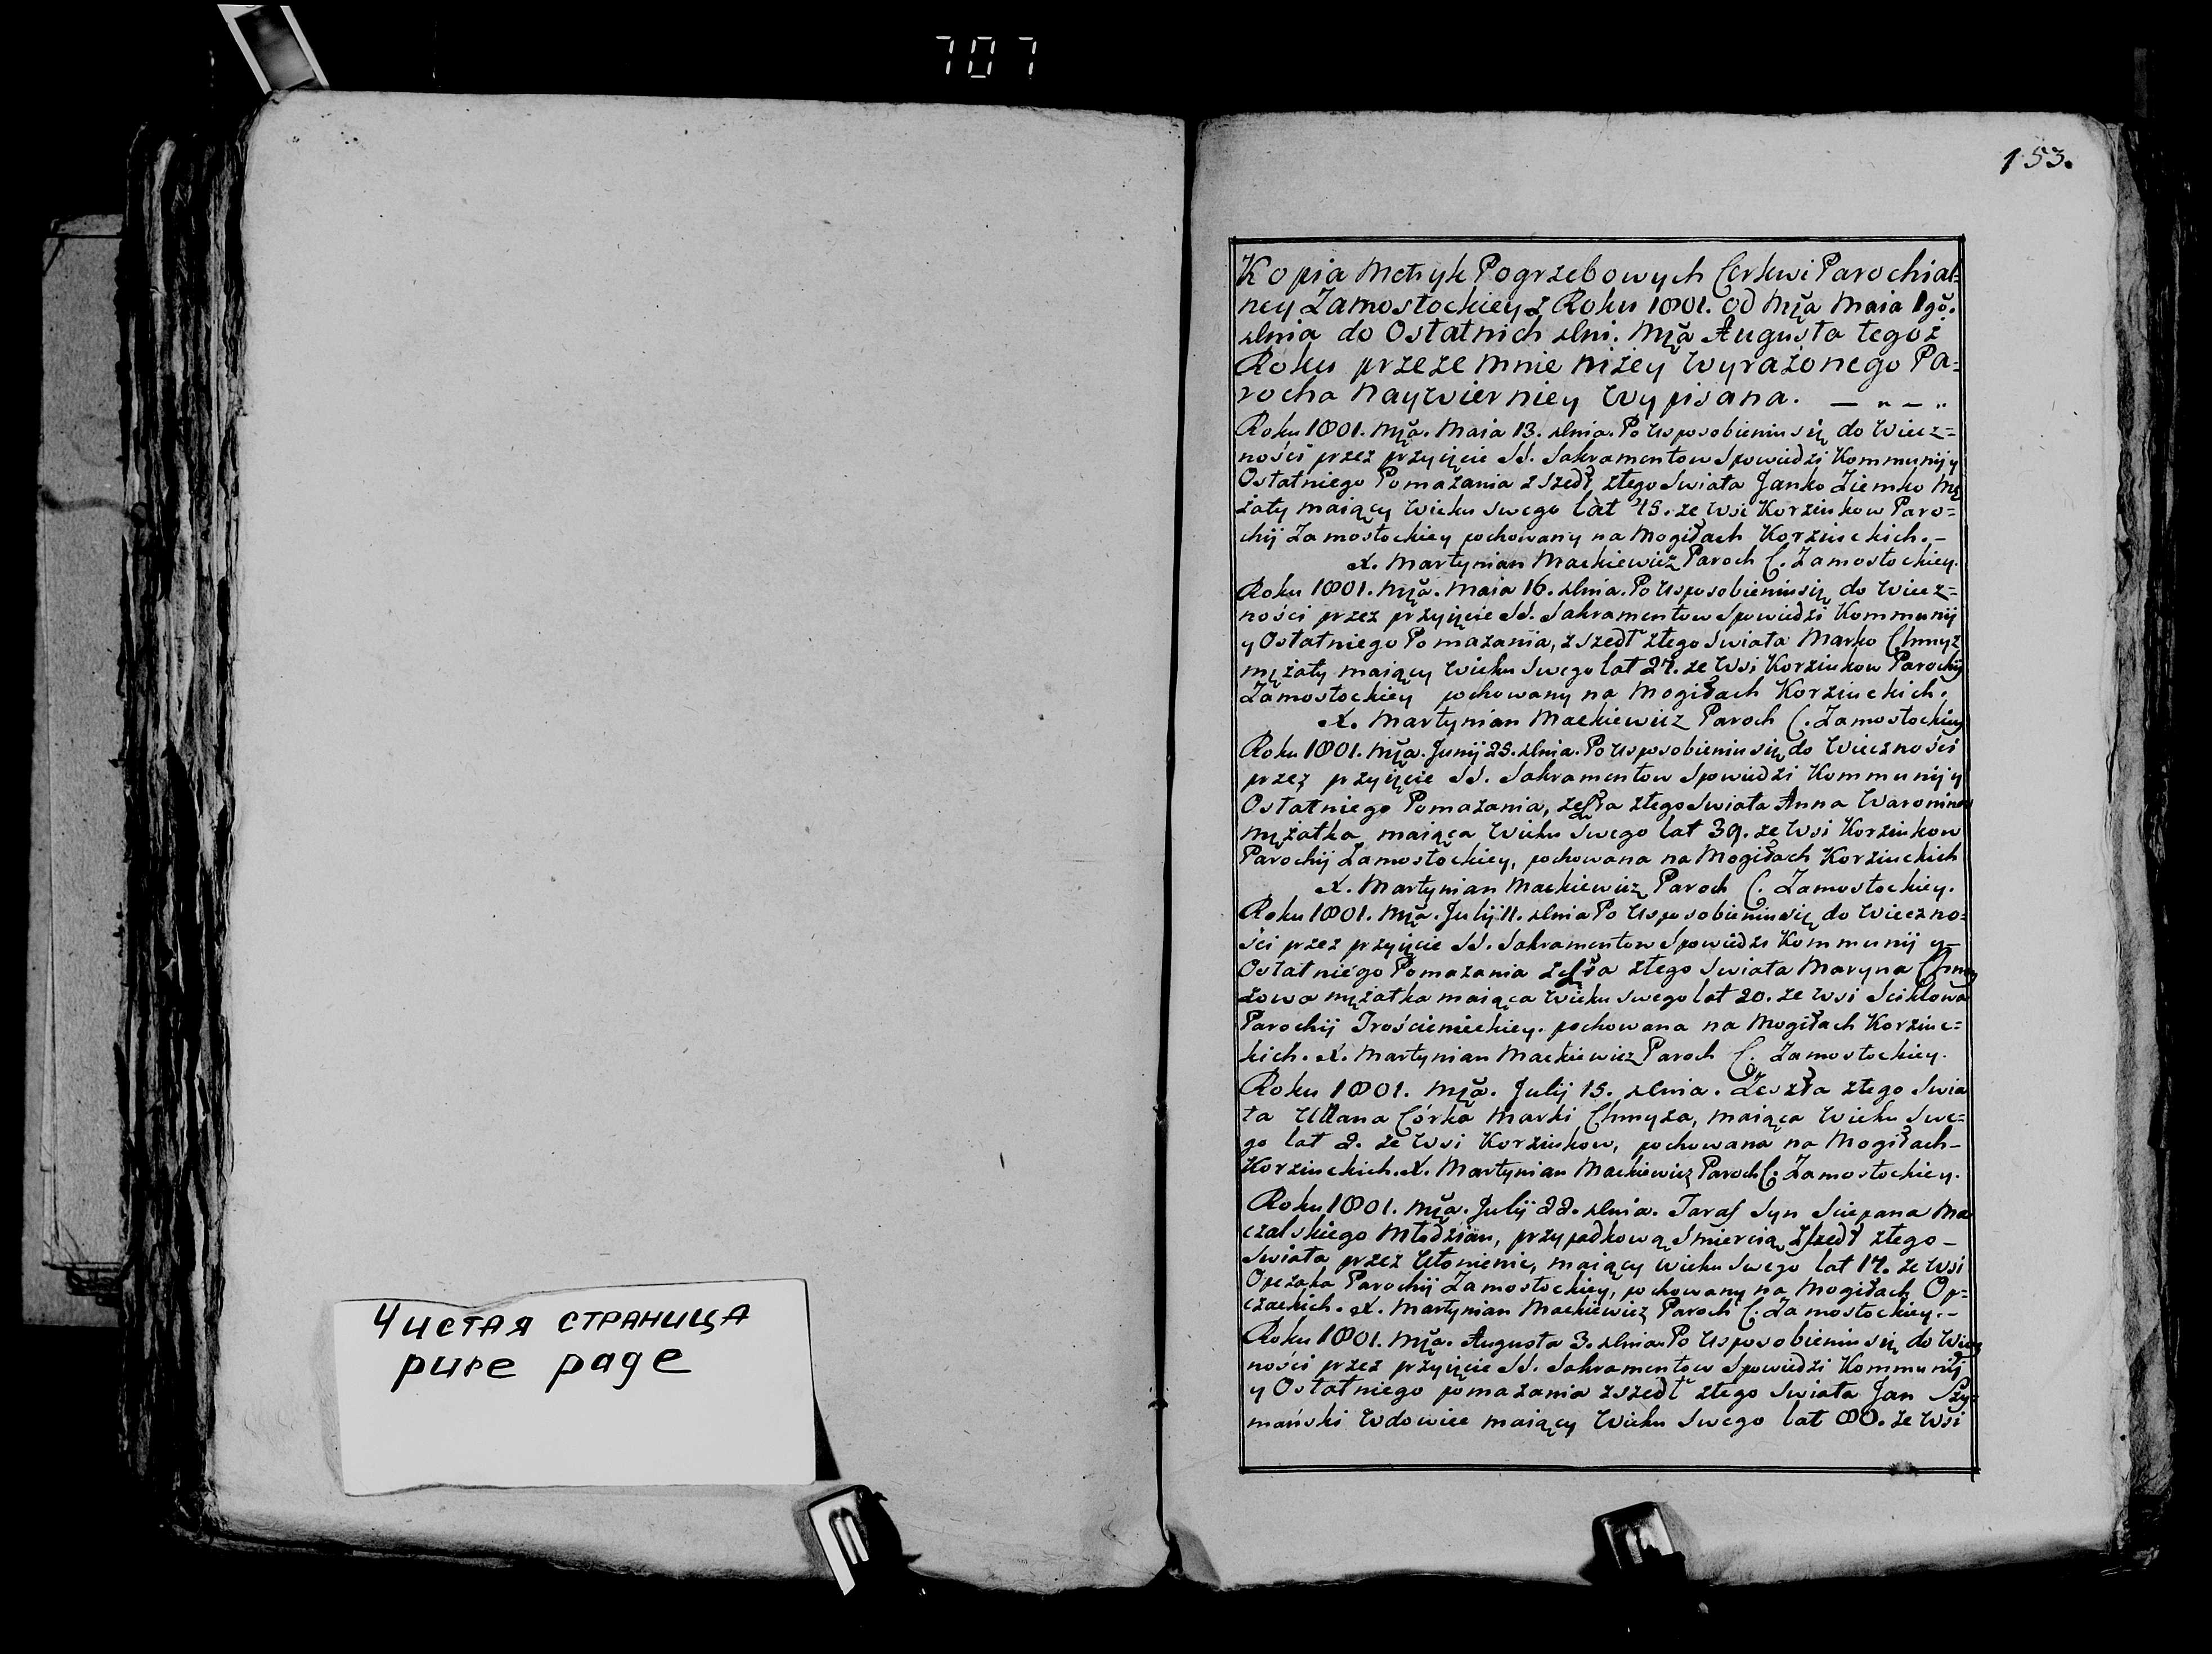 707
153.
Kopia Metryk Pogrzebowych Cerkwi Parochial=
ney Zamostockiey z Roku 1801. od Mça Maia 1go.
dnia do Ostatnich dni. Mça Augusta tegoż
Roku przeze mnie niżey wyrażonego Pa=
rocha Naywierniey Wypisana. — „ — „
Roku 1801. Mça. Maia 13. dnia. Po Usposobieniu się do Wiecz=
ności przez przyięcie SS. Sakramentow Spowiedzi Kommunij y
Ostatniego Pomazania zszedł ztego Swiata Janko Ziemko Mę
żaty maiący Wieku swego lat 45. ze Wsi Korzinkow Paro=
chij Zamostockiey pochowany na Mogiłach Korzinckich. —
X. Martynian Mackiewicz Paroch C. Zamostockiey.
Roku 1801. Mça. Maia 16. dnia. Po Usposobieniu się do Wiecz=
ności przez przyięcie SS. Sakramentow Spowiedzi Kommunij
y Ostatniego Pomazania, zszedł ztego Swiata Marko Chmyz
mężaty maiący Wieku Swego lat 27. ze Wsi Korzinkow Parochij
Zamostockiey pochowany na Mogiłach Korzinckich.
X. Martynian Mackiewicz Paroch C. Zamostockiey
Roku 1801. Mça. Junij 25. dnia. Po Usposobieniu się do Wieczności
przez przyięcie SS. Sakramentow Spowiedzi Kommunij y
Ostatniego Pomazania, zeszła ztego Swiata Anna
mężatka maiąca Wieku Swego lat 39. ze Wsi Korzinkow
Parochij Zamostockiey, pochowana na Mogiłach Korzinckich
X. Martynian Mackiewicz Paroch C. Zamostockiey.
Roku 1801. Mça. Julij 11. dnia Po Usposobieniu się do Wieczno=
ści przez przyięcie SS. Sakramentow Spowiedzi Kommunij y —
Ostatniego Pomazania zeszła ztego Swiata Maryna Chmy
zowa mężatka maiąca Wieku swego lat 20. ze Wsi Sciklowa
Parochij Trościenieckiey. pochowana na Mogiłach Korzinc=
kich. X. Martynian Mackiewicz Paroch C. Zamostockiey.
Roku 1801. Mça. Julij 15. dnia. Zeszła ztego Swia
ta Ullana Córka Marki Chmyza, maiąca Wieku Swe=
go lat 2. ze Wsi Korzinkow, pochowana na Mogiłach —
Korzinckich. X. Martynian Mackiewicz Paroch C. Zamostockiey.
Roku 1801. Mça. Julij 22. dnia. Taras Syn Sciepana Ma
czalskiego Młodzian, przypadkową Smiercią zszedł ztego —
Swiata przez Utonienie, maiący wieku Swego lat 17. ze Wsi
Parochij Zamostockiey, pochowany na Mogiłach Op=
czackich. X. Martynian Mackiewicz Paroch C. Zamostockiey. —
Roku 1801. Mça. Augusta 3. dnia. Po Usposobieniu się do Wiecz
ności przez przyięcie SS. Sakramentow Spowiedzi Kommunij
y Ostatniego pomazania zszedł ztego Swiata Jan Szy=
mański Wdowiec maiący Wieku Swego lat 80. ze Wsi
Чистая страница
pure page